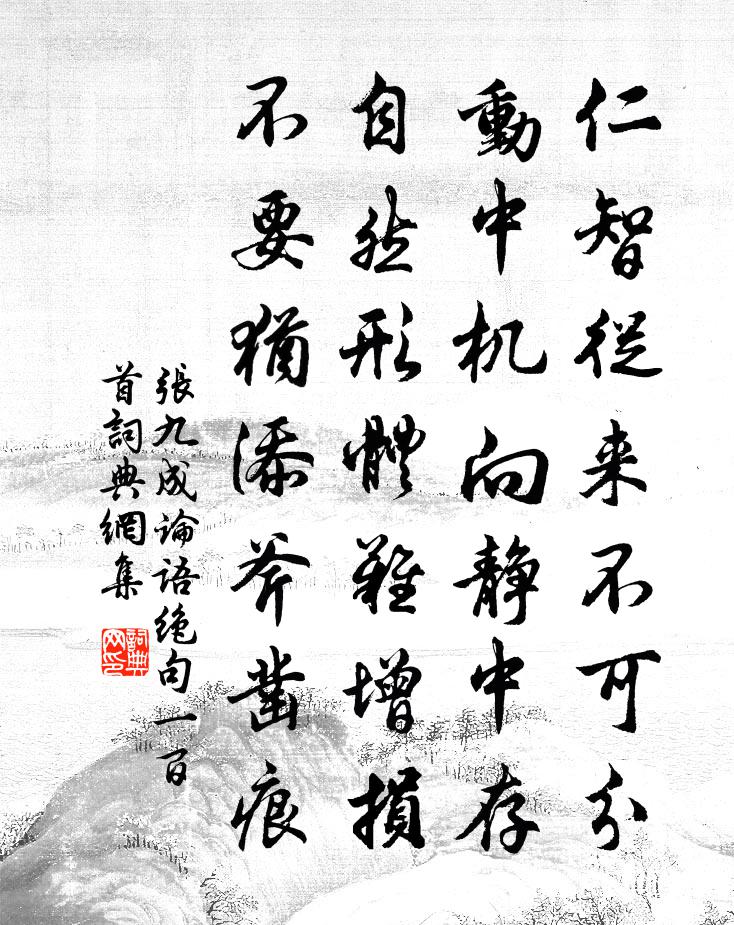 仁智從来不可分
動中机向静中存
自然形體難增損
不要猶添斧凿痕
張九成論語絶句一百
首詞典網集
詞典网印